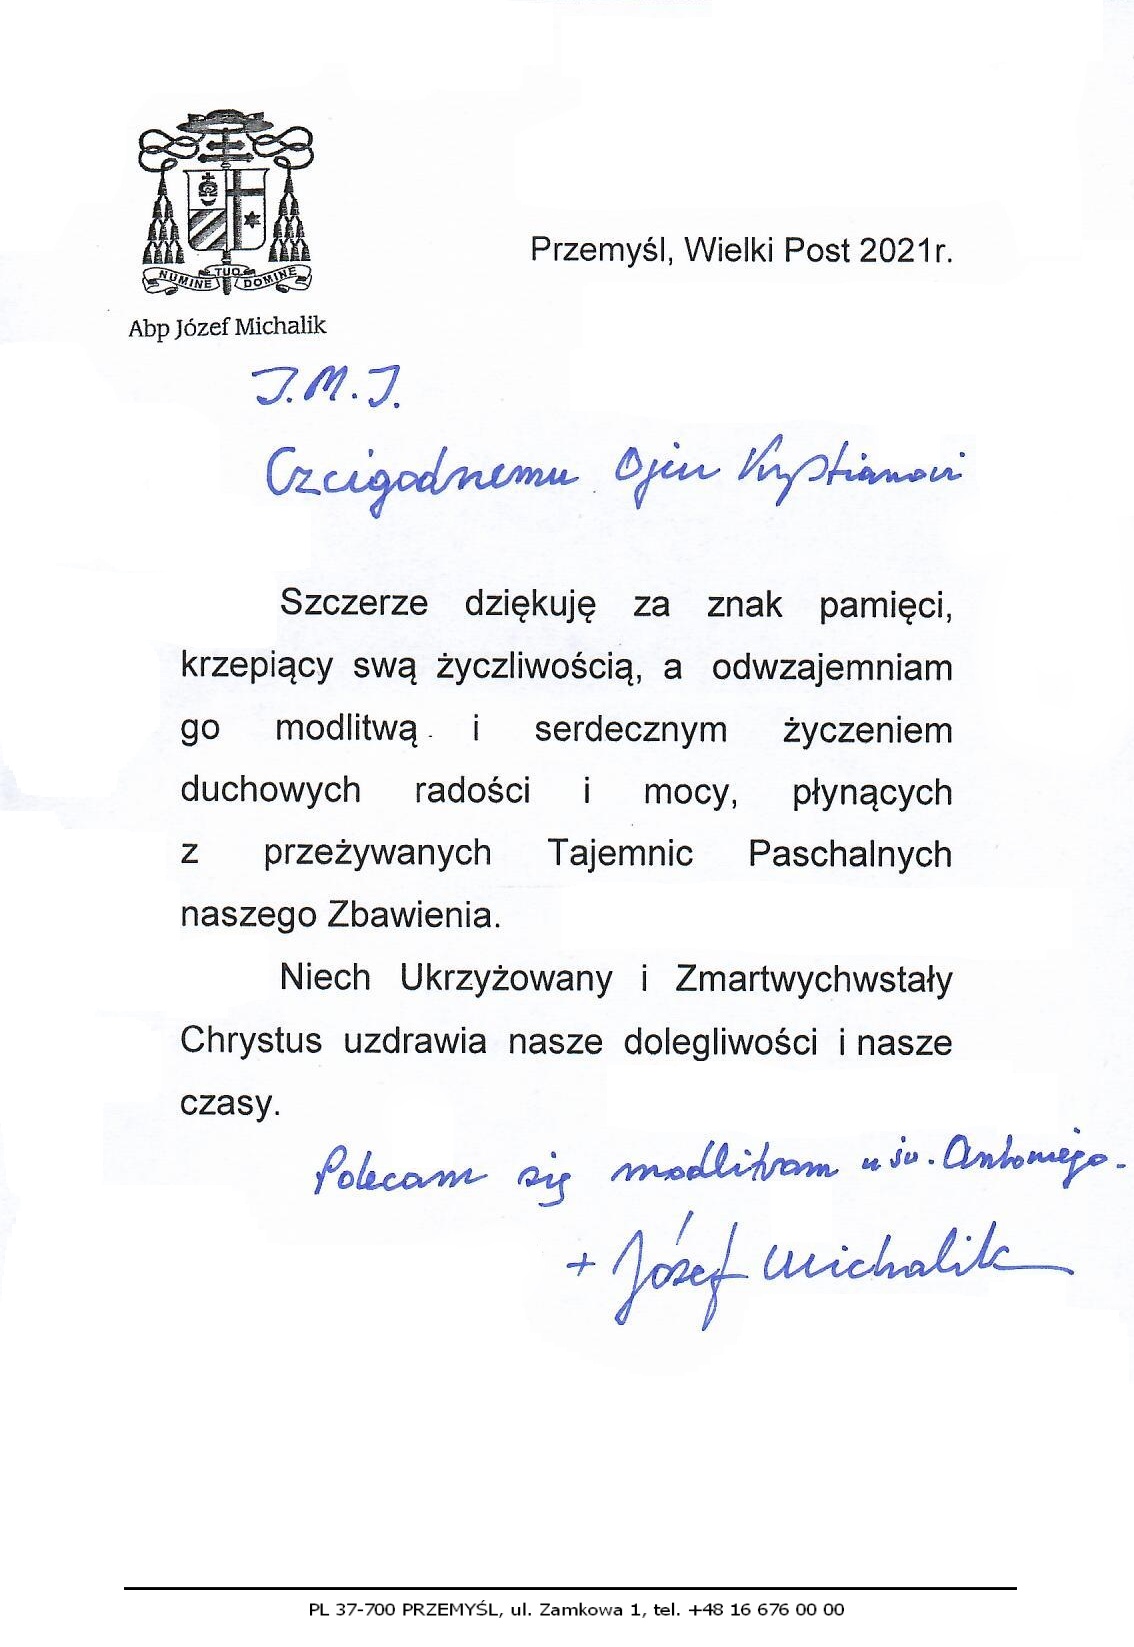 NUMINE TUO DOMINE
Abp Józef Michalik
Przemyśl, Wielki Post 2021r.
J.M.J.
Czcigodnemu Ojcu Krystianowi
Szczerze dziękuję za znak pamięci,
krzepiący swą życzliwością, a odwzajemniam
go modlitwą i serdecznym życzeniem
duchowych radości i mocy, płynących
z przeżywanych Tajemnic Paschalnych
naszego Zbawienia.
Niech Ukrzyżowany i Zmartwychwstały
Chrystus uzdrawia nasze dolegliwości i nasze
czasy.
Polecam się modlitwom u św. Antoniego.
+ Józef Michalik
PL 37-700 PRZEMYŚL, ul. Zamkowa 1, tel. +48 16 676 00 00